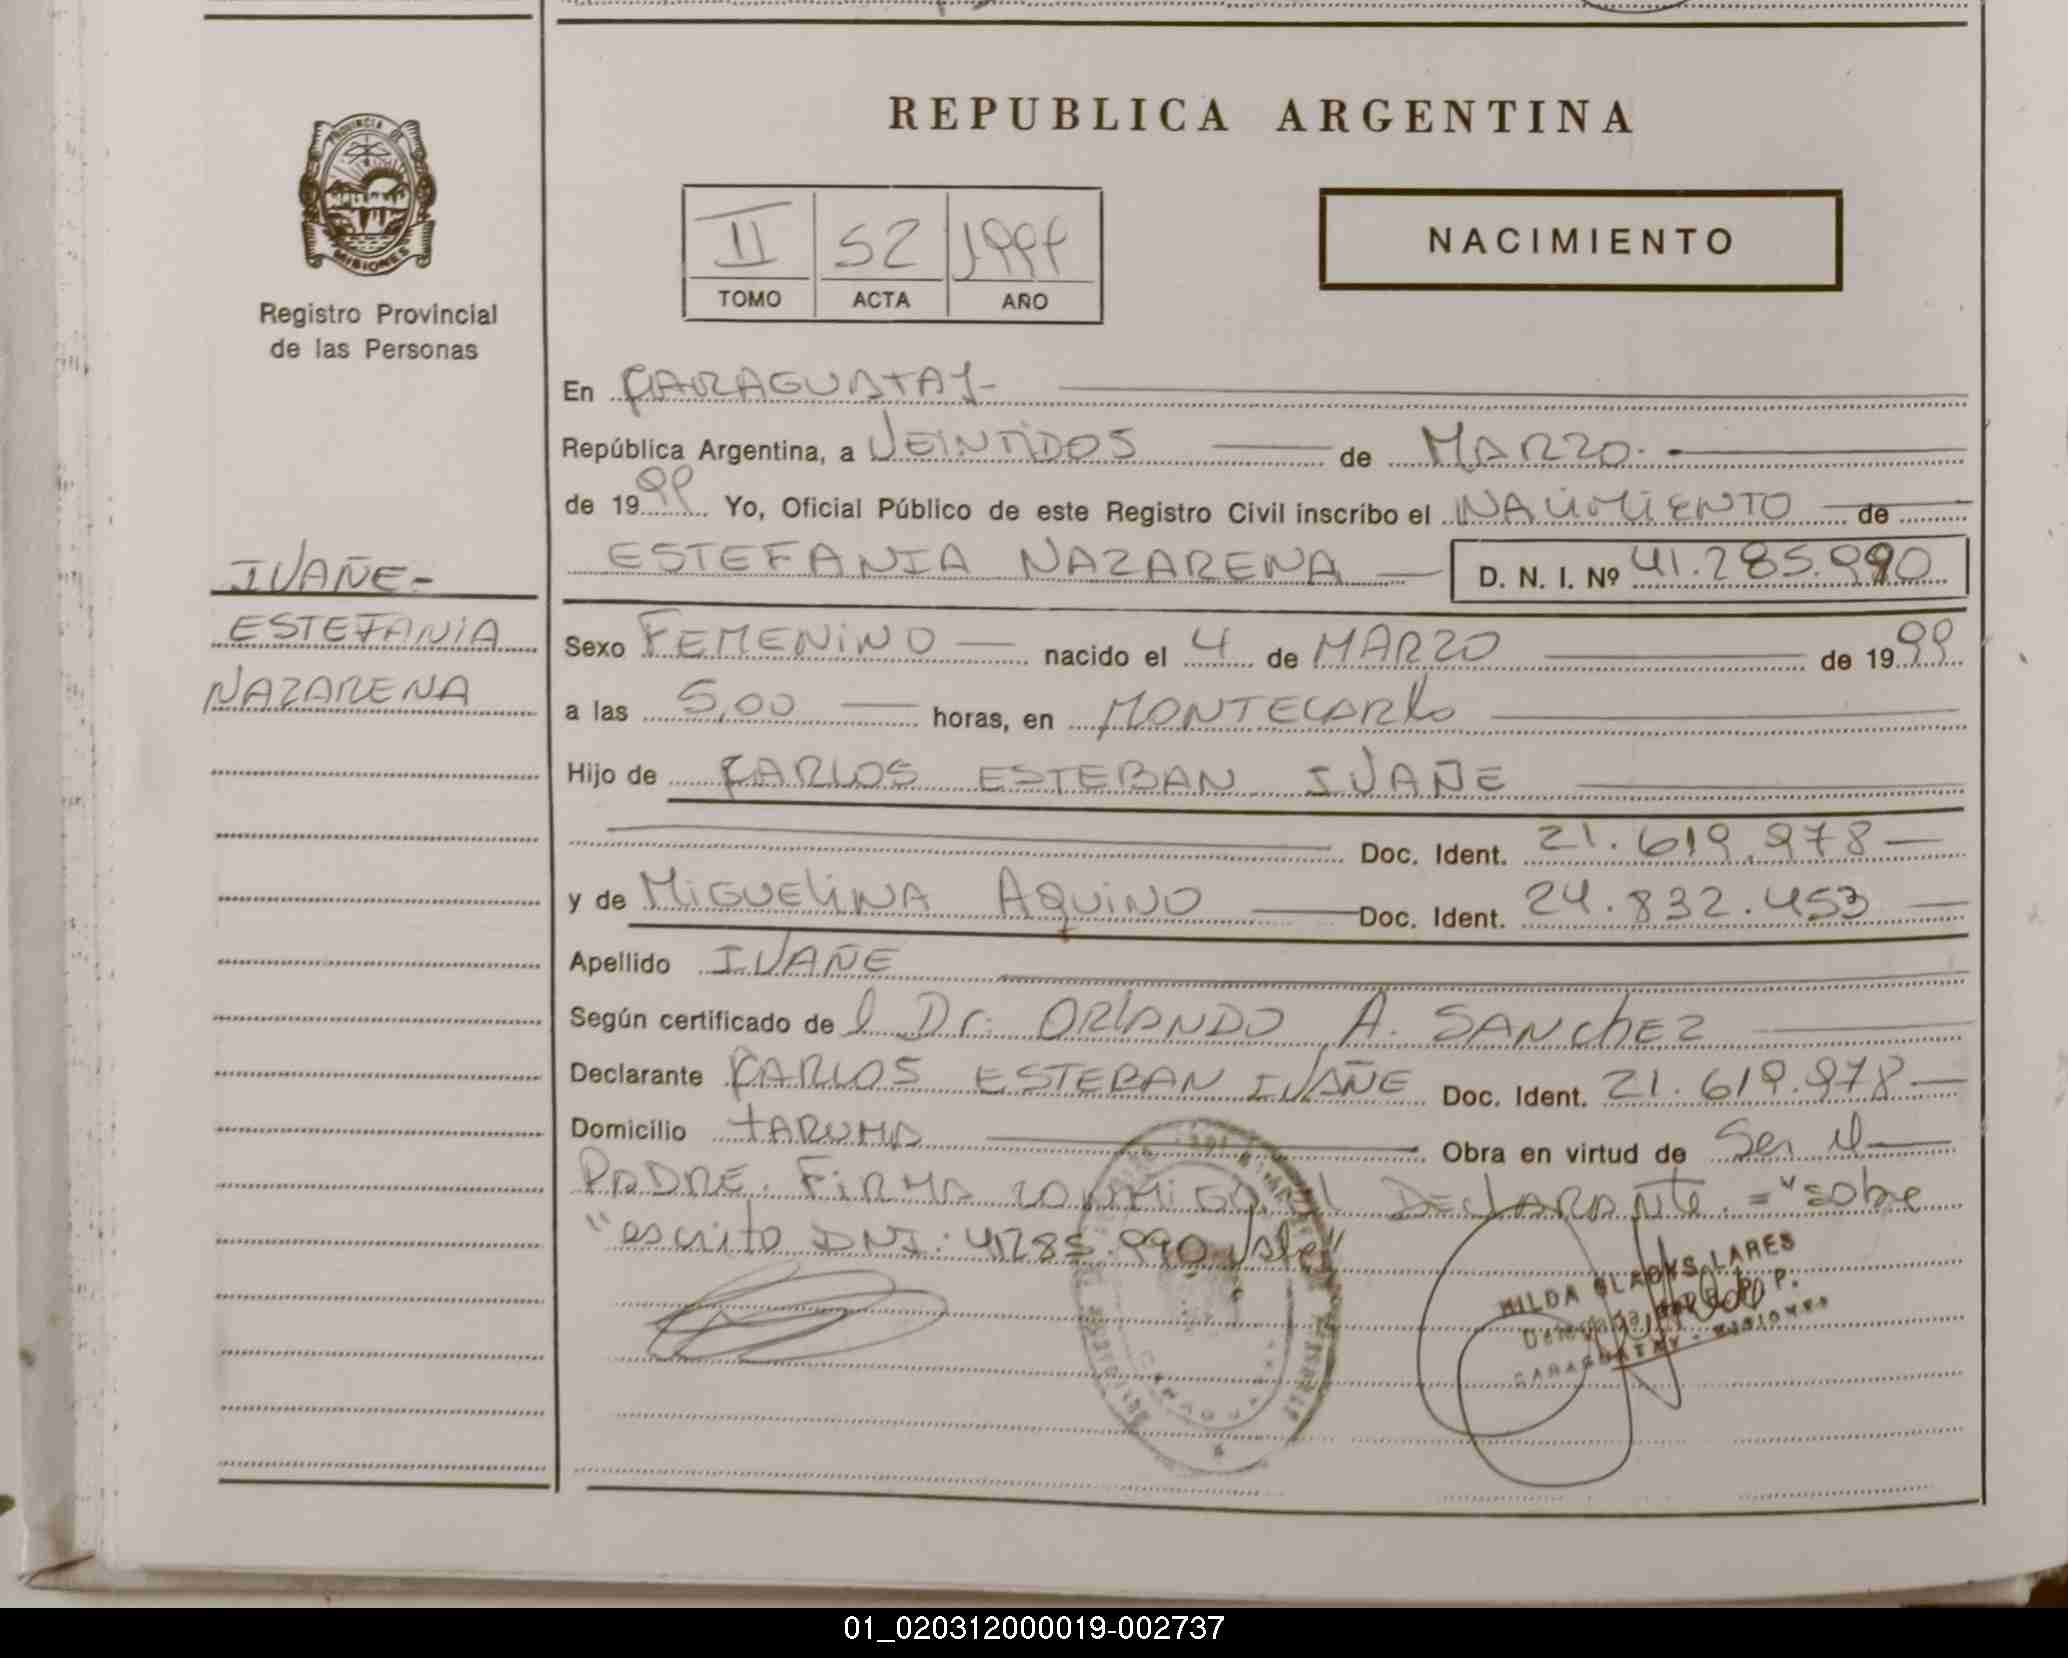 REPUBLICA ARGENTINA
PROVINCIA DE
MISIONES
Registro Provincial
de las Personas
II 52 1999
TOMO ACTA AÑO
NACIMIENTO
En CARAGUATAY-
República Argentina, a VEINTIDOS de MARZO.
de 1999 Yo, Oficial Público de este Registro Civil inscribo el NACIMIENTO de
ESTEFANIA NAZARENA D. N. I. Nº 41.285.990
IVAÑE-
ESTEFANIA
NAZARENA
Sexo FEMENINO nacido el 4 de MARZO de 1999
a las 5,00 horas, en MONTECARLO
Hijo de CARLOS ESTEBAN IVAÑE
Doc. Ident. 21.619.978
y de MIGUELINA AQUINO Doc. Ident. 24.832.453
Apellido IVAÑE
Según certificado del Dr. ORLANDO A. SANCHEZ
Declarante CARLOS ESTEBAN IVAÑE Doc. Ident. 21.619.978
Domicilio TARUMA Obra en virtud de Ser el
PADRE. FIRMA CONMIGO el DECLARANTE. = "sobre
"escrito DNI: 41285.990 Vale"
HILDA GLADYS LARES
CARAGUATAY - MISIONES
01_020312000019-002737